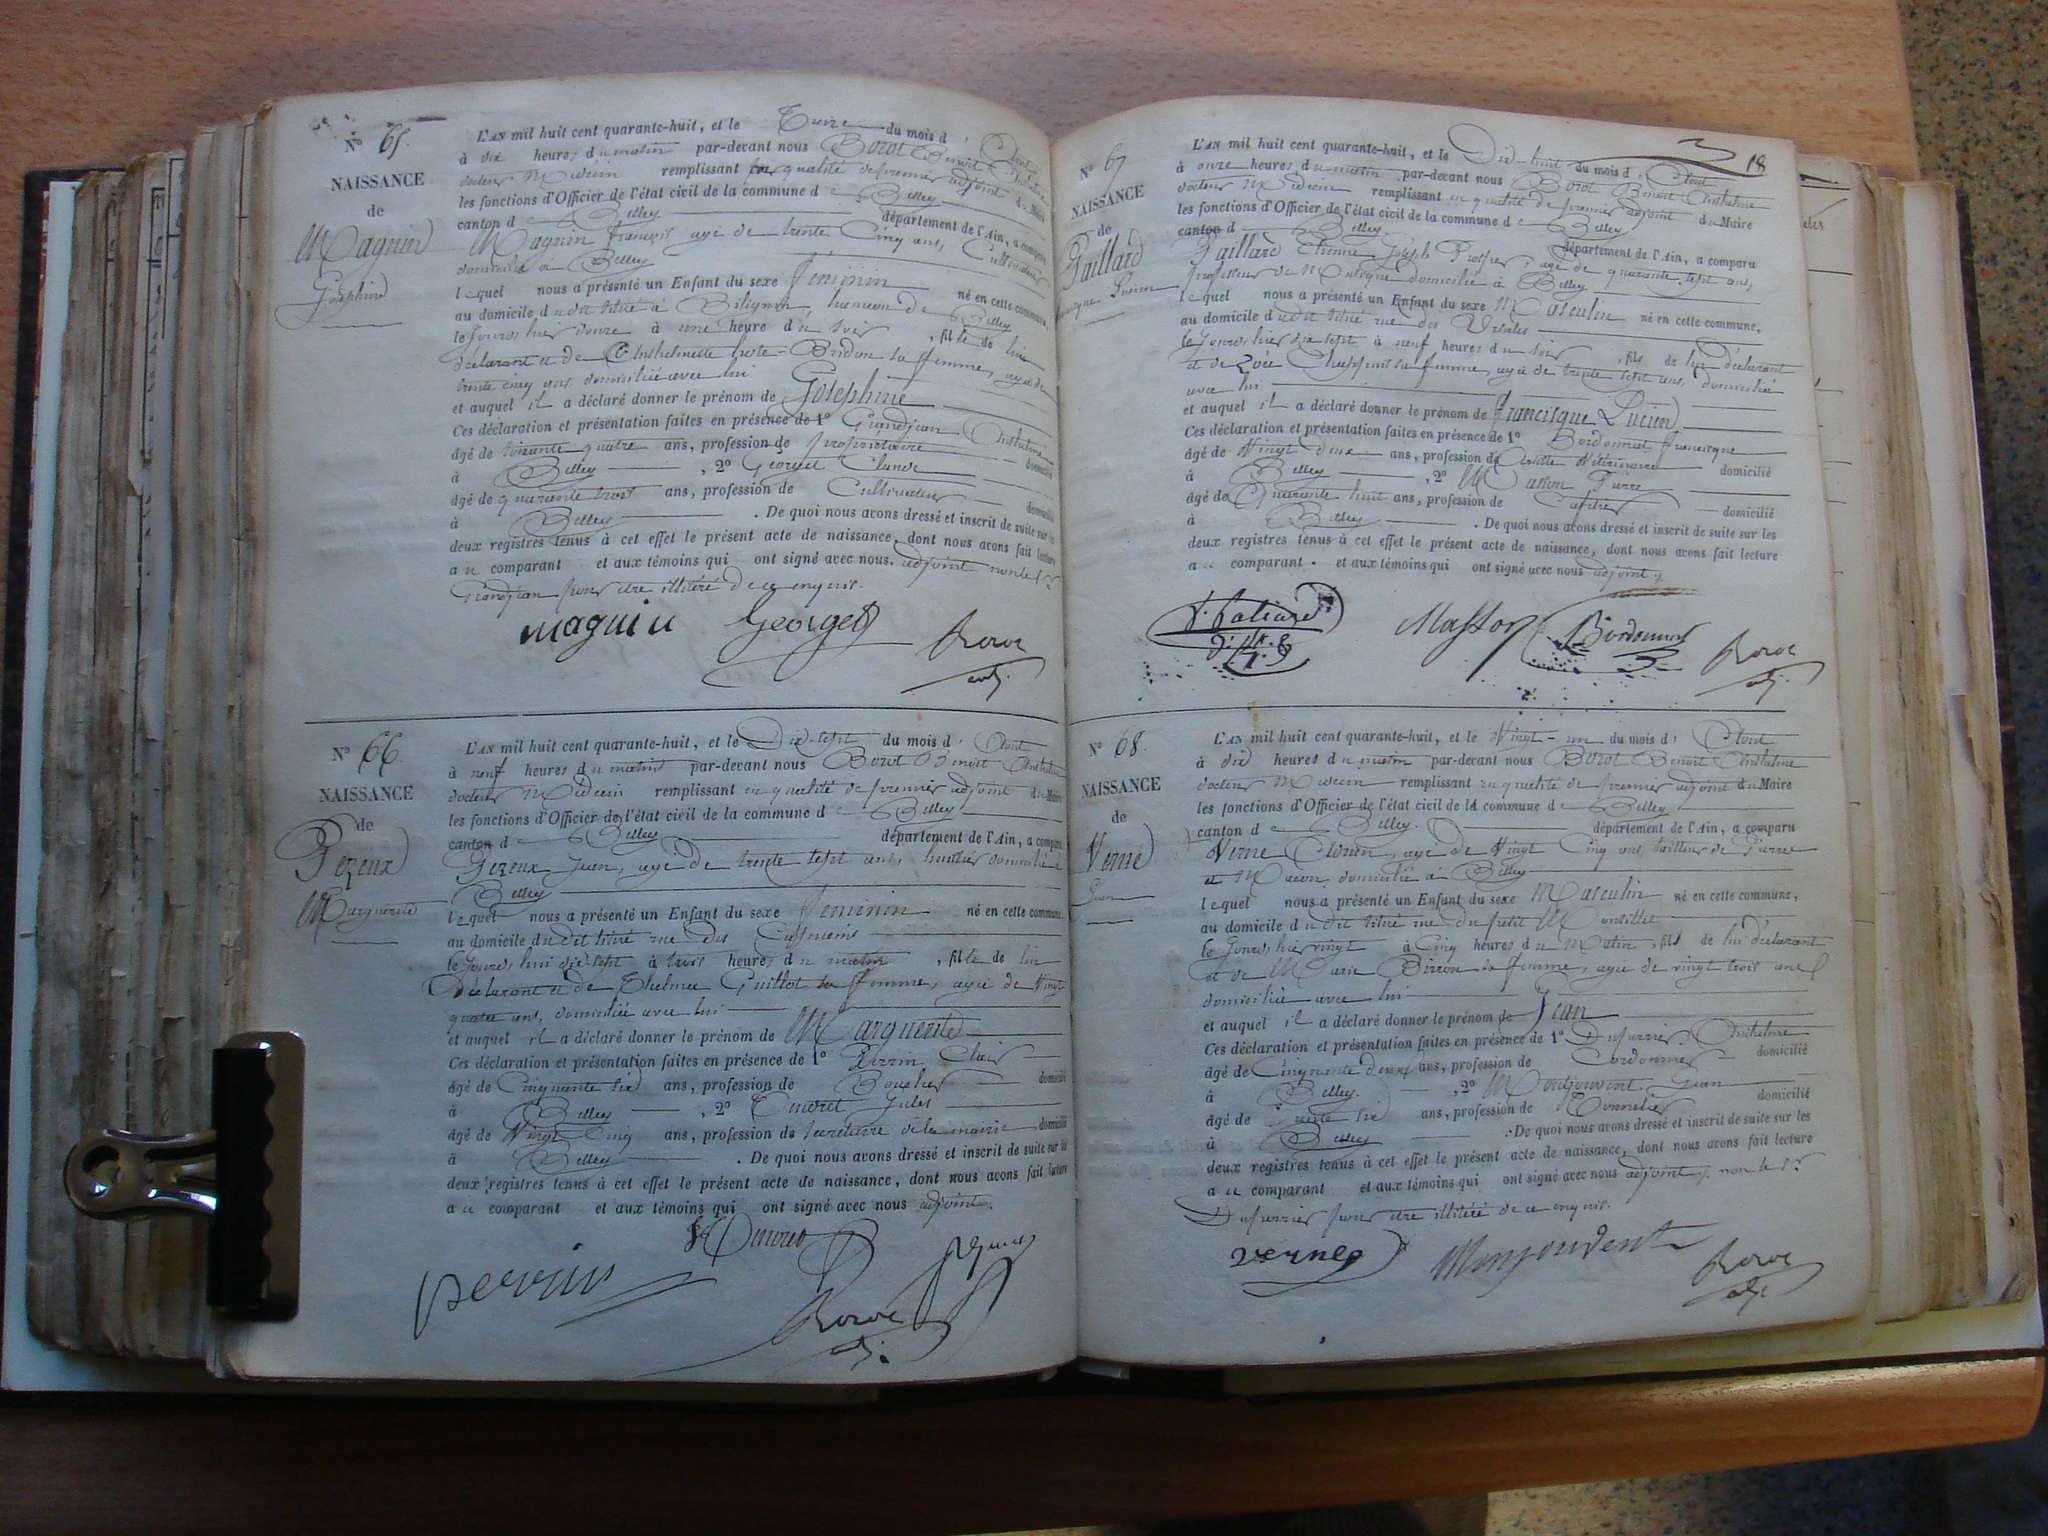 N° 65.
NAISSANCE
de
Magnin
Joséphine
L'AN mil huit cent quarante-huit, et le Treize du mois d' Aout
à dix heures du matin par-devant nous Borot Benoit Anthelme
docteur Médecin remplissant en qualité de premier adjoint du Maire
les fonctions d'Officier de l'état civil de la commune de Belley
canton de Belley département de l'Ain, a comparu
Magnin François agé de trente Cinq ans, Cultivateur
domicilié à Belley
lequel nous a présenté un Enfant du sexe féminin né en cette commune,
au domicile du dit situé à Bilignin, hameau de Belley
le jour d'hier douze à une heure du soir, fille de lui
déclarant et de Anthelmette Bridon sa femme, agée de
trente cinq ans domiciliée avec lui
et auquel il a déclaré donner le prénom de Joséphine
Ces déclaration et présentation faites en présence de 1° Grandjean Anthelme
âgé de soixante quatre ans, profession de propriétaire domicilié
à Belley, 2° Georget Claude
âgé de quarante trois ans, profession de Cultivateur domicilié
à Belley. De quoi nous avons dressé et inscrit de suite sur les
deux registres tenus à cet effet le présent acte de naissance, dont nous avons fait lecture
au comparant et aux témoins qui ont signé avec nous adjoint non le Sr
Grandjean pour être illitéré de ce enquis.
magnin Georget Borot
adj.
N° 66.
NAISSANCE
de
Pezeux
Marguerite
L'AN mil huit cent quarante-huit, et le Dix-sept du mois d' Aout
à neuf heures du matin par-devant nous Borot Benoit Anthelme
docteur Médecin remplissant en qualité de premier adjoint du Maire
les fonctions d'Officier de l'état civil de la commune de Belley
canton de Belley département de l'Ain, a comparu
Pezeux Jean, agé de trente sept ans, huissier domicilié à
Belley
lequel nous a présenté un Enfant du sexe féminin né en cette commune,
au domicile du dit situé rue des
le jourd'hui dix-sept à trois heures du matin, fille de lui
déclarant et de Guillot sa femme, agée de Vingt
quatre ans, domiciliée avec lui
et auquel il a déclaré donner le prénom de Marguerite
Ces déclaration et présentation faites en présence de 1° Perrin Clair
âgé de Cinquante six ans, profession de Boucher domicilié
à Belley, 2° Jules
âgé de Vingt Cinq ans, profession de Secrétaire de la mairie domicilié
à Belley. De quoi nous avons dressé et inscrit de suite sur les
deux registres tenus à cet effet le présent acte de naissance, dont nous avons fait lecture
au comparant et aux témoins qui ont signé avec nous adjoint.
perrin Borot
adj.
18
N° 67
NAISSANCE
de
Paillard
Francisque Lucien
L'AN mil huit cent quarante-huit, et le Dix-huit du mois d' Aout
à onze heures du matin par-devant nous Borot Benoit Anthelme
docteur Médecin remplissant en qualité de premier adjoint du Maire
les fonctions d'Officier de l'état civil de la commune de Belley
canton de Belley département de l'Ain, a comparu
Paillard Etienne Joseph Prosper, agé de quarante sept ans,
professeur de Musique domicilié à Belley
lequel nous a présenté un Enfant du sexe Masculin né en cette commune,
au domicile du dit situé rue des
le jour d'hier dix sept à neuf heures du soir, fils de lui déclarant
et de Zoée Chappuis sa femme, agée de trente sept ans, domiciliée
avec lui
et auquel il a déclaré donner le prénom de Francisque Lucien
Ces déclaration et présentation faites en présence de 1° Bordonnat Francisque
âgé de Vingt deux ans, profession de Artiste Vétérinaire domicilié
à Belley, 2° Masson Pierre
âgé de Quarante huit ans, profession de domicilié
à Belley. De quoi nous avons dressé et inscrit de suite sur les
deux registres tenus à cet effet le présent acte de naissance, dont nous avons fait lecture
au comparant et aux témoins qui ont signé avec nous adjoint
Masson Bordonnat Borot
adj.
N° 68.
NAISSANCE
de
Verne
Jean
L'AN mil huit cent quarante-huit, et le Vingt-un du mois d' Aout
à dix heures du matin par-devant nous Borot Benoit Anthelme
docteur Médecin remplissant en qualité de premier adjoint du Maire
les fonctions d'Officier de l'état civil de la commune de Belley
canton de Belley département de l'Ain, a comparu
Verne agé de Vingt Cinq ans, tailleur de Pierre
et Maçon, domicilié à Belley
lequel nous a présenté un Enfant du sexe Masculin né en cette commune,
au domicile du dit situé rue du petit
le jour d'hier vingt à Cinq heures du Matin, fils de lui déclarant
et de Marie sa femme, agée de vingt trois ans
domiciliée avec lui
et auquel il a déclaré donner le prénom de Jean
Ces déclaration et présentation faites en présence de 1° Dufurrier Anthelme
âgé de Cinquante deux ans, profession de Cordonnier domicilié
à Belley, 2° Montjouvent Jean
âgé de trente six ans, profession de Tonnelier domicilié
à Belley. De quoi nous avons dressé et inscrit de suite sur les
deux registres tenus à cet effet le présent acte de naissance, dont nous avons fait lecture
au comparant et aux témoins qui ont signé avec nous adjoint non le Sr
Dufurrier pour être illitéré de ce enquis.
verne Monjouvent Borot
adj.